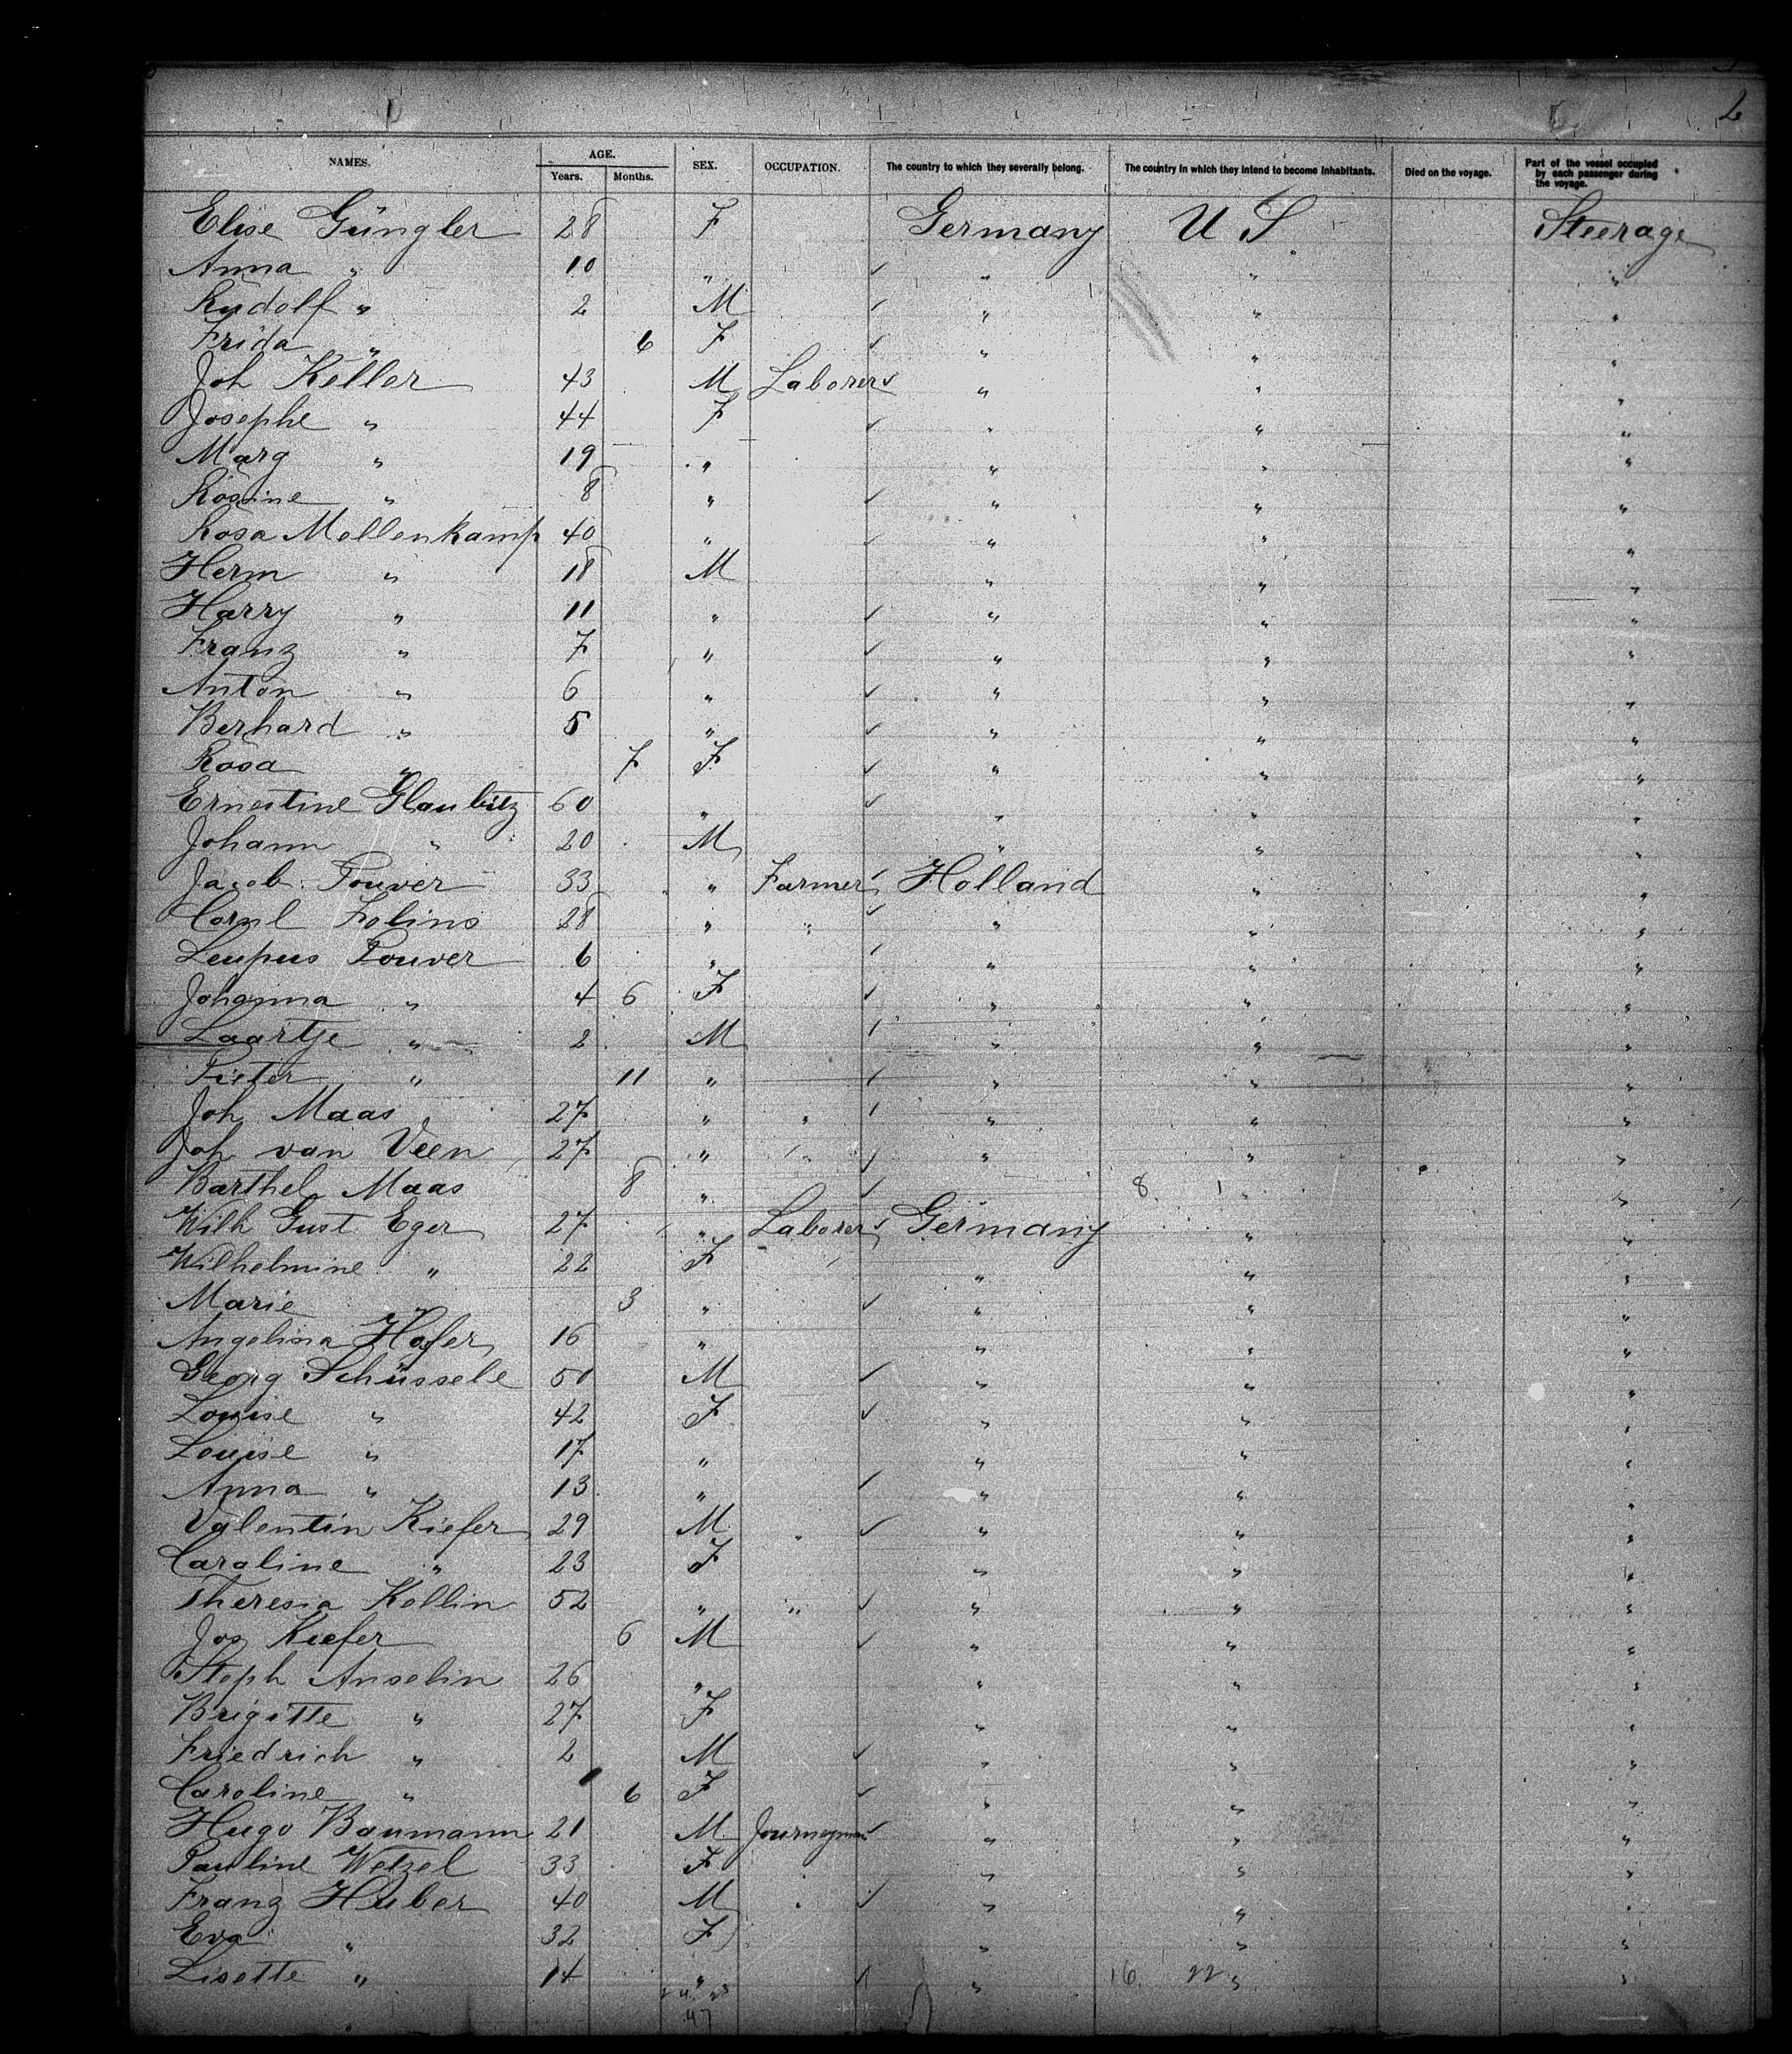 2
NAMES. AGE. Years. Months. SEX. OCCUPATION. The country to which they severally belong. The country in which they intend to become inhabitants. Died on the voyage. Part of the vessel occupied by each passenger during the voyage.
Elise Güngler 28 F Germany U S Steerage
Anna " 10 " " " "
Rudolf " 2 M " " "
Frida " 6 F " " "
Joh Keller 43 M Laborer " " "
Josephe " 44 F " " "
Marg " 19 " " " "
Rosine " 8 " " " "
Rosa Mellenkamp 40 " " " "
Herm " 18 M " " "
Harry " 11 " " " "
Franz " 7 " " " "
Anton " 6 " " " "
Berhard " 5 " " " "
Rosa " 7 F " " "
Ernestine Glaubitz 60 " " " "
Johann " 20 M " " "
Jacob Pouver 33 " Farmer Holland " "
Cornl 28 " " " " "
Leupus Pouver 6 " " " "
Johanna " 4 6 F " " "
Laartje " 2 M " " "
Pieter " 11 " " " "
Joh Maas 27 " " " " "
Joh van Veen 27 " " " " "
Barthel Maas 8 " " 8 1 " "
Wilh Gust Eger 27 " Laborer Germany " "
Wilhelmine " 22 F " " "
Marie " 3 " " " "
Angelina Hofer 16 " " " "
Georg Schüssele 50 M " " "
Louise " 42 F " " "
Louise " 17 " " " "
Anna " 13 " " " "
Valentin Kiefer 29 M " " " "
Caroline " 23 F " " "
Theresia Kollin 52 " " " " "
Jos Kiefer 6 M " " "
Steph Anselin 26 " " " "
Brigitte " 27 F " " "
Friedrich " 2 M " " "
Caroline " 6 F " " "
Hugo Baumann 21 M Journeyman " " "
Pauline Wetzel 33 F " " "
Franz Huber 40 M " " " "
Eva " 32 F " " "
Lisette " 14 " " 16 22 " "
47